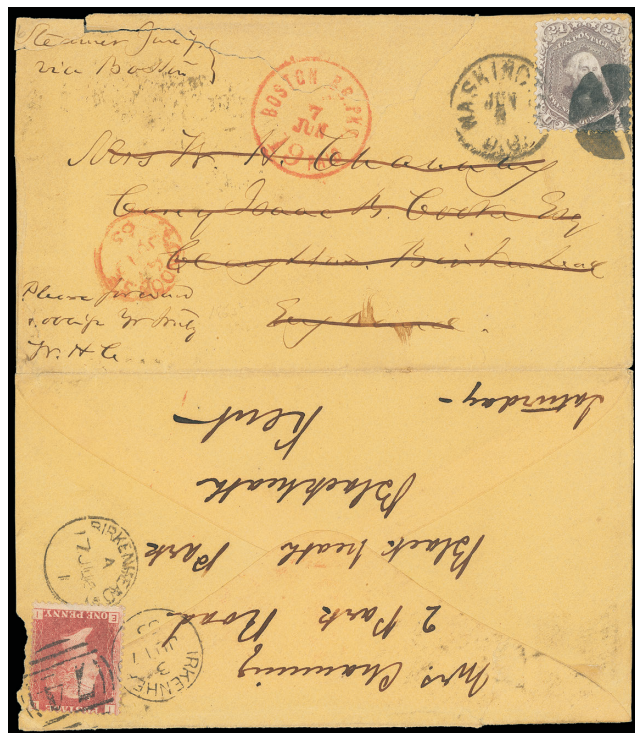 Steamer
via Boston
BOSTON BR. PKT.
7
JUN
19
PAID
WASHINGTON
JUN
D.C.
24 24
U.S. POSTAGE
Mrs W. H. Channing
Care Isaac B. Cooke Esq
Claughton Birkenhead
England
Please forward
W. H. C
Saturday
Mrs Channing
2 Park Road
Black heath Park
Blackheath
Kent
BIRKENHEAD
A
17 JU
BIRKENHEAD
3
JU 17
ONE PENNY
POSTAGE